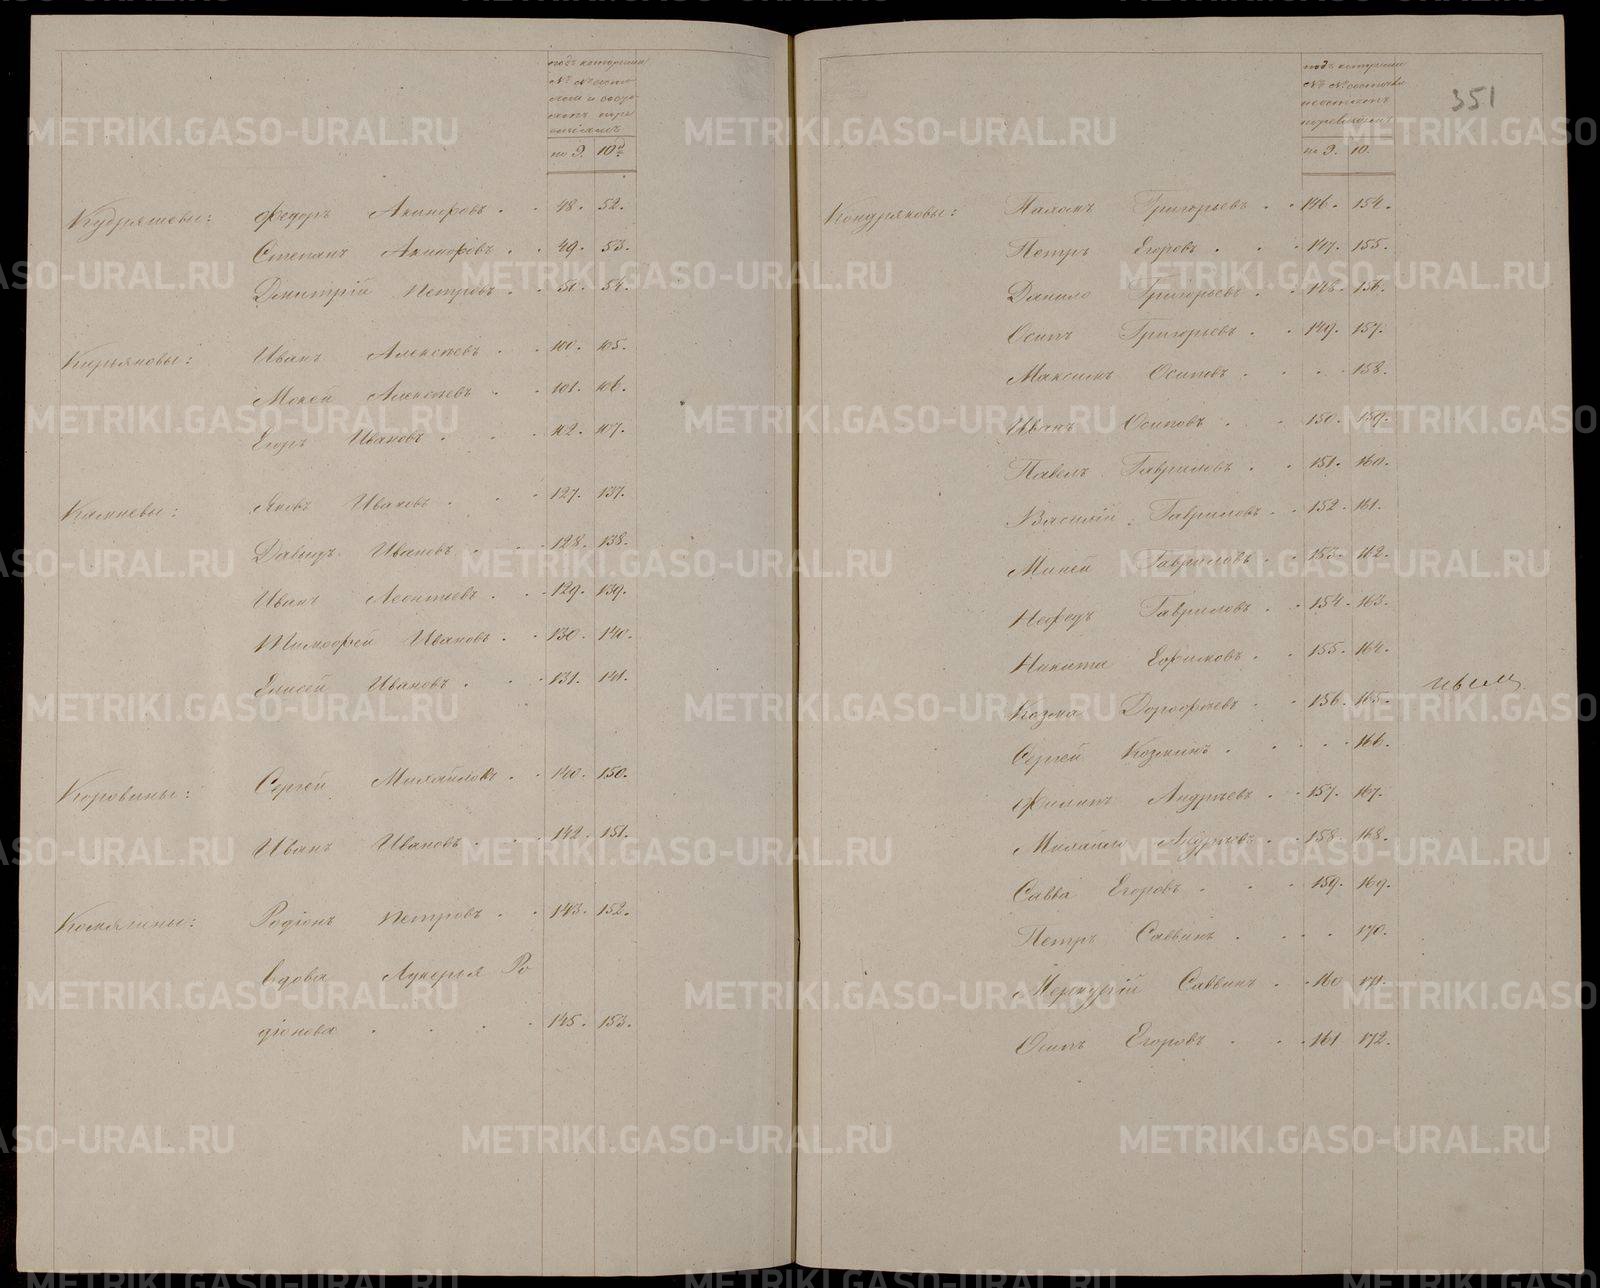 по 9. 10й
Кудряшевы: Федоръ Акинфовъ . . 48. 52.
Степанъ Акинфовъ . . 49. 53.
Дмитрій Петровъ . . 51. 54.
Кирьяновы: Иванъ Алексѣевъ . . 100. 105.
Мокей Алексѣевъ . . 101. 106.
Егоръ Ивановъ . . . 102. 107.
Камневы: Яковъ Ивановъ . . . 127. 137.
Давыдъ Ивановъ . . . 128. 138.
Иванъ Леонтьевъ . . . 129. 139.
Тимофей Ивановъ . . 130. 140.
Елисей Ивановъ . . . 131. 141.
Коровины: Сергей Михайловъ . . 140. 150.
Иванъ Ивановъ . . . 142. 151.
Родіонъ Петровъ . . 143. 152.
вдова Лукерья Ро
діонова . . . . 145. 153.
351
по 9. 10.
Кондряковы: Григорьевъ . . 146. 154.
Петръ Егоровъ . . . 147. 155.
Данило Григорьевъ . . 148. 156.
Осипъ Григорьевъ . . 149. 157.
Максимъ Осиповъ . . . . 158.
Иванъ Осиповъ . . . 150. 159.
Павелъ Гавриловъ . . 151. 160.
Василій Гавриловъ . . 152. 161.
Миней Гавриловъ . . 153. 162.
Нефедъ Гавриловъ . . 154. 163.
Никита Ефимовъ . . 155. 164.
Козма Дорофѣевъ . . 156. 165.
Сергей Козминъ . . . . 166.
Филипъ Андрѣевъ . . 157. 167.
Михайло Андрѣевъ . . 158. 168.
Савва Егоровъ . . . 159. 169.
Петръ Саввинъ . . . . 170.
Меркурій Саввинъ . . 160 171.
Осипъ Егоровъ . . . 161 172.
METRIKI.GASO-URAL.RU